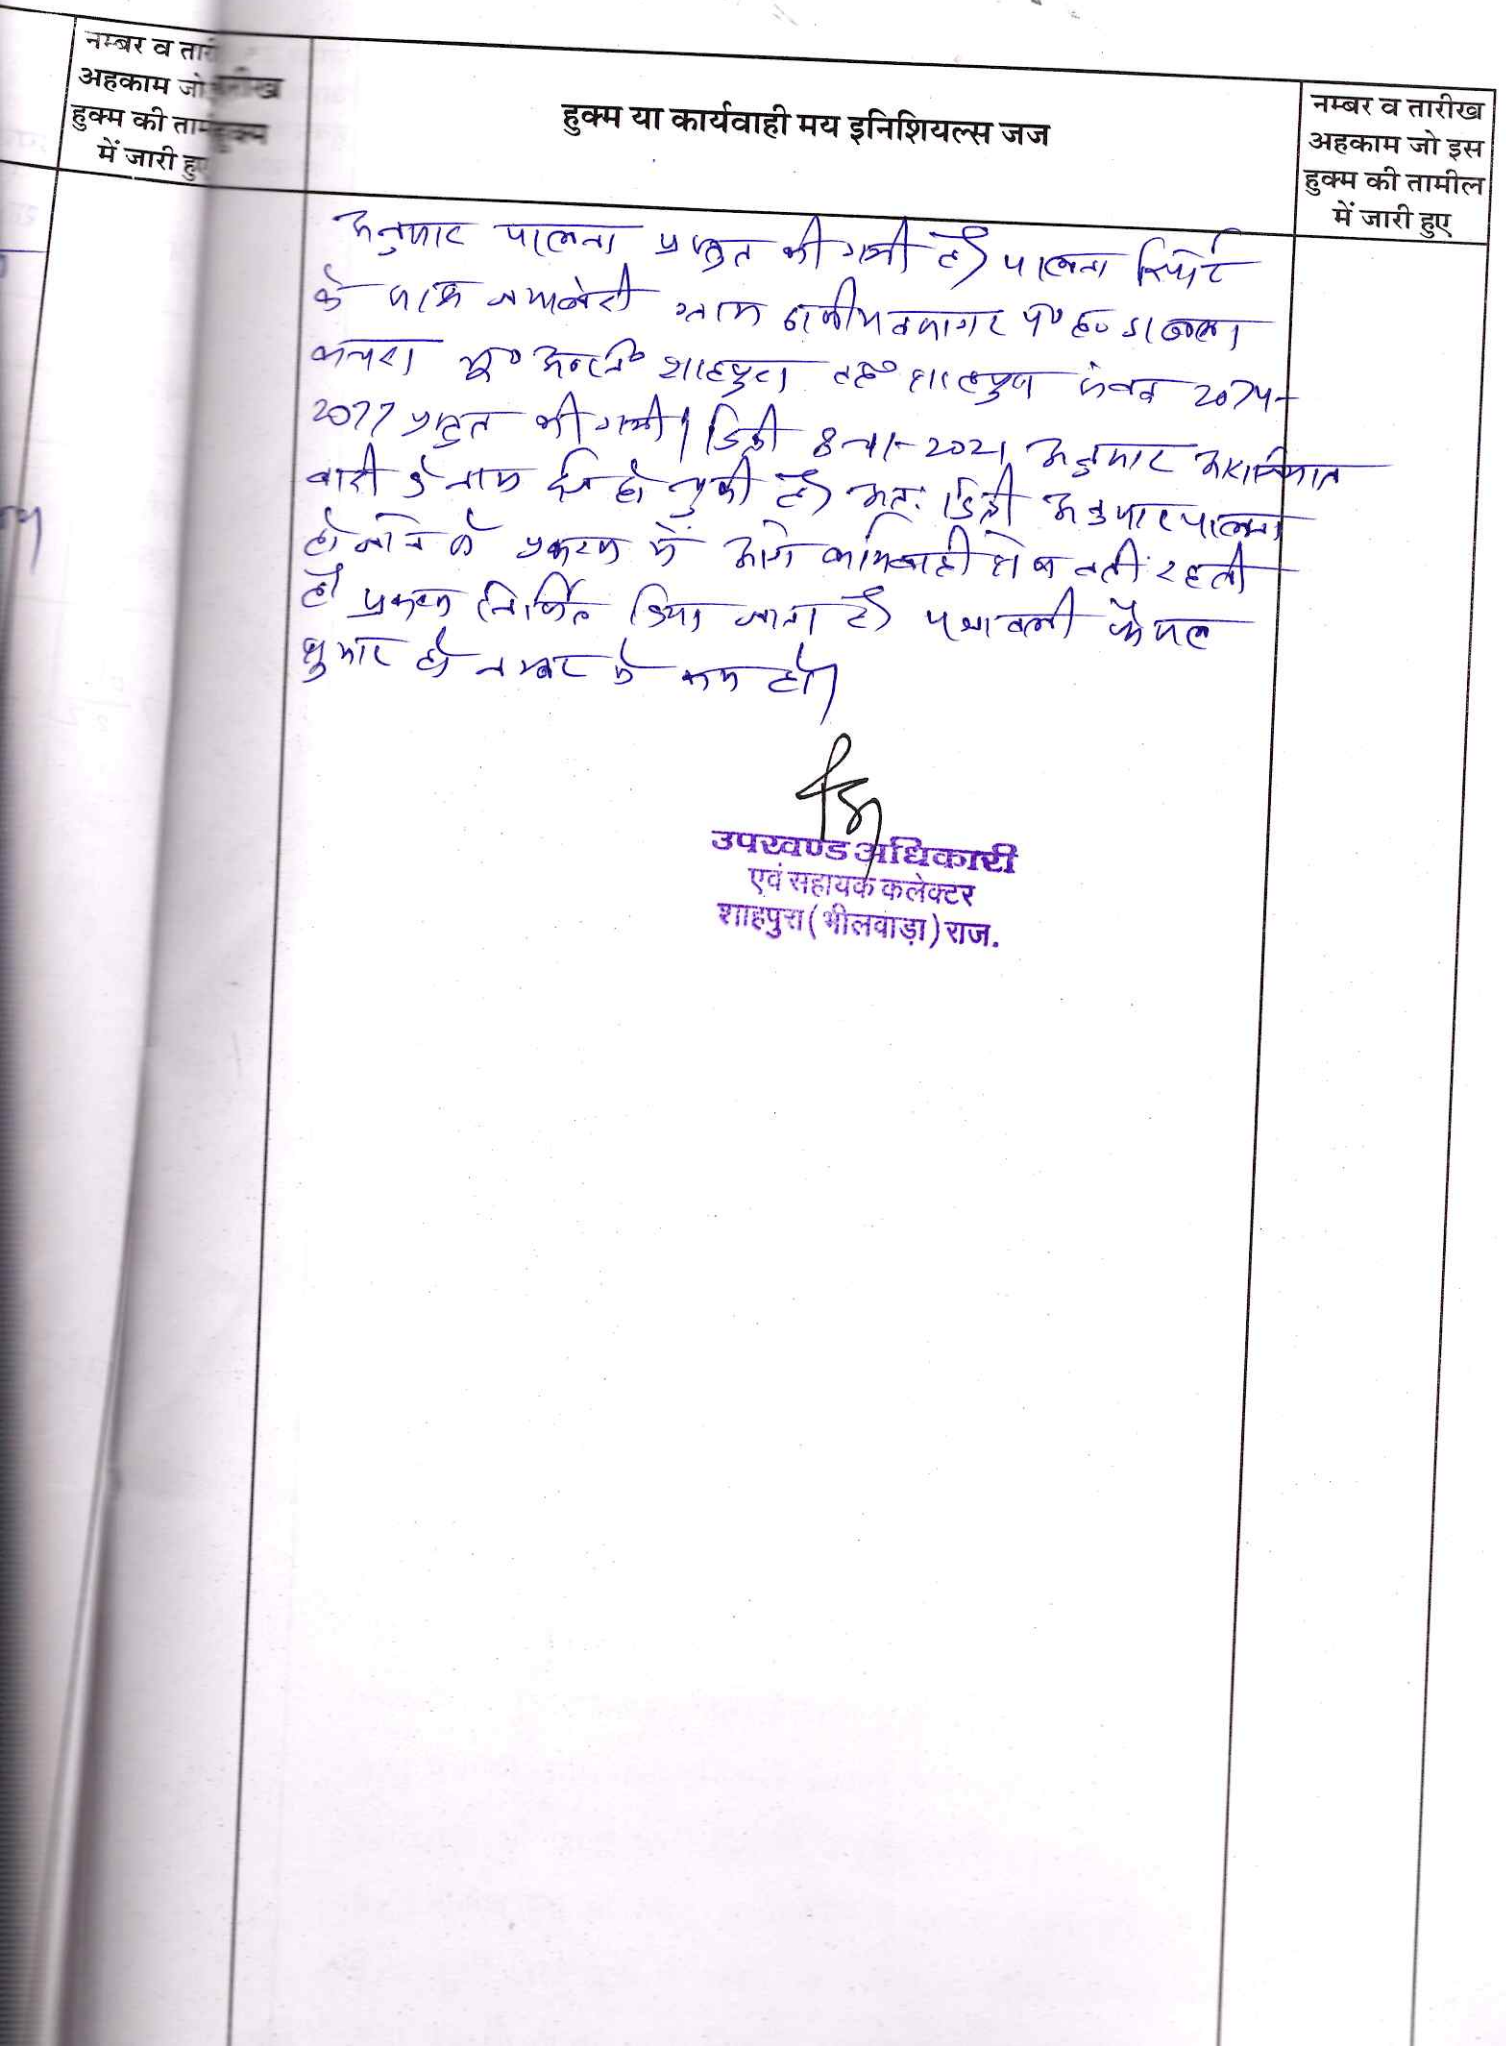 नम्बर व तारी
अहकाम जो तारीख
हुक्म की ताम हुक्म
में जारी हुए
हुक्म या कार्यवाही मय इनिशियल्स जज
नम्बर व तारीख
अहकाम जो इस
हुक्म की तामील
में जारी हुए
अनुसार पालना प्रस्तुत की गयी है। पालना रिपोर्ट
के साथ जमाबंदी ग्राम प० ह०
शाहपुरा तह० शाहपुरा संवत 2074-
2077 प्रस्तुत की गयी। डिक्री 2021 अनुसार
वादी के नाम दर्ज हो चुकी है। अतः डिक्री अनुसार पालना
हो जाने से प्रकरण में आगे कार्यवाही शेष नहीं रहती
है। प्रकरण निर्णित किया जाता है। पत्रावली फैसल
शुमार हो नम्बर से कम हो।
उपखण्ड अधिकारी
एवं सहायक कलेक्टर
शाहपुरा (भीलवाड़ा) राज.